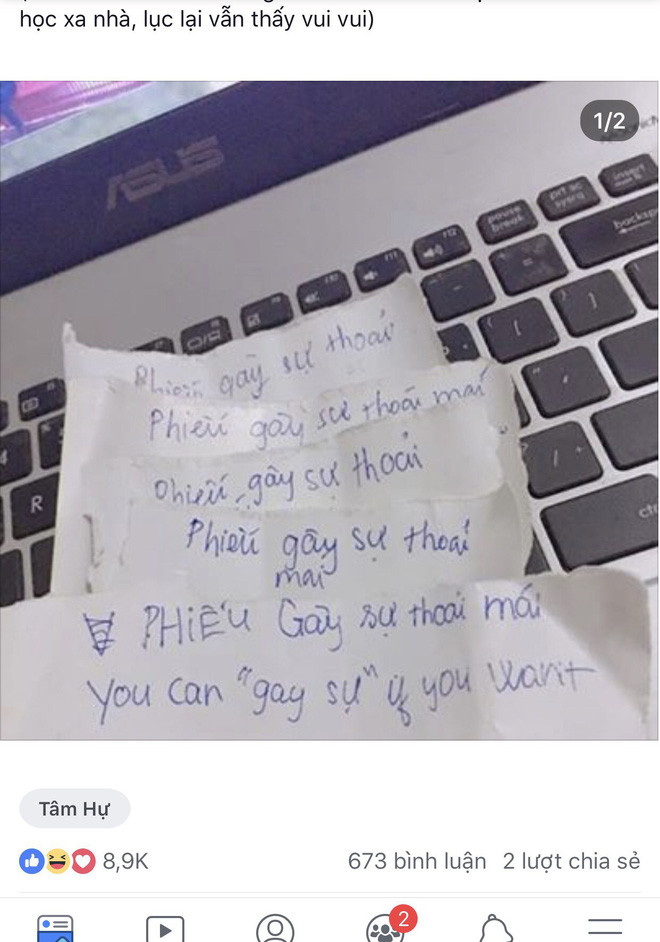 học xa nhà, lục lại vẫn thấy vui vui)
1/2
ASUS
prt sc
sysrq
insert
pause
break
backsp
f12
f11
f10
Phiếu gây sự thoải
Phiếu gây sự thoải mái
Phiếu gây sự thoải
Phiếu gây sự thoải
mái
R
ctr
PHIẾU Gây sự thoải mái
You can "gay sự" if you want
Tâm Hự
8,9K
673 bình luận 2 lượt chia sẻ
2